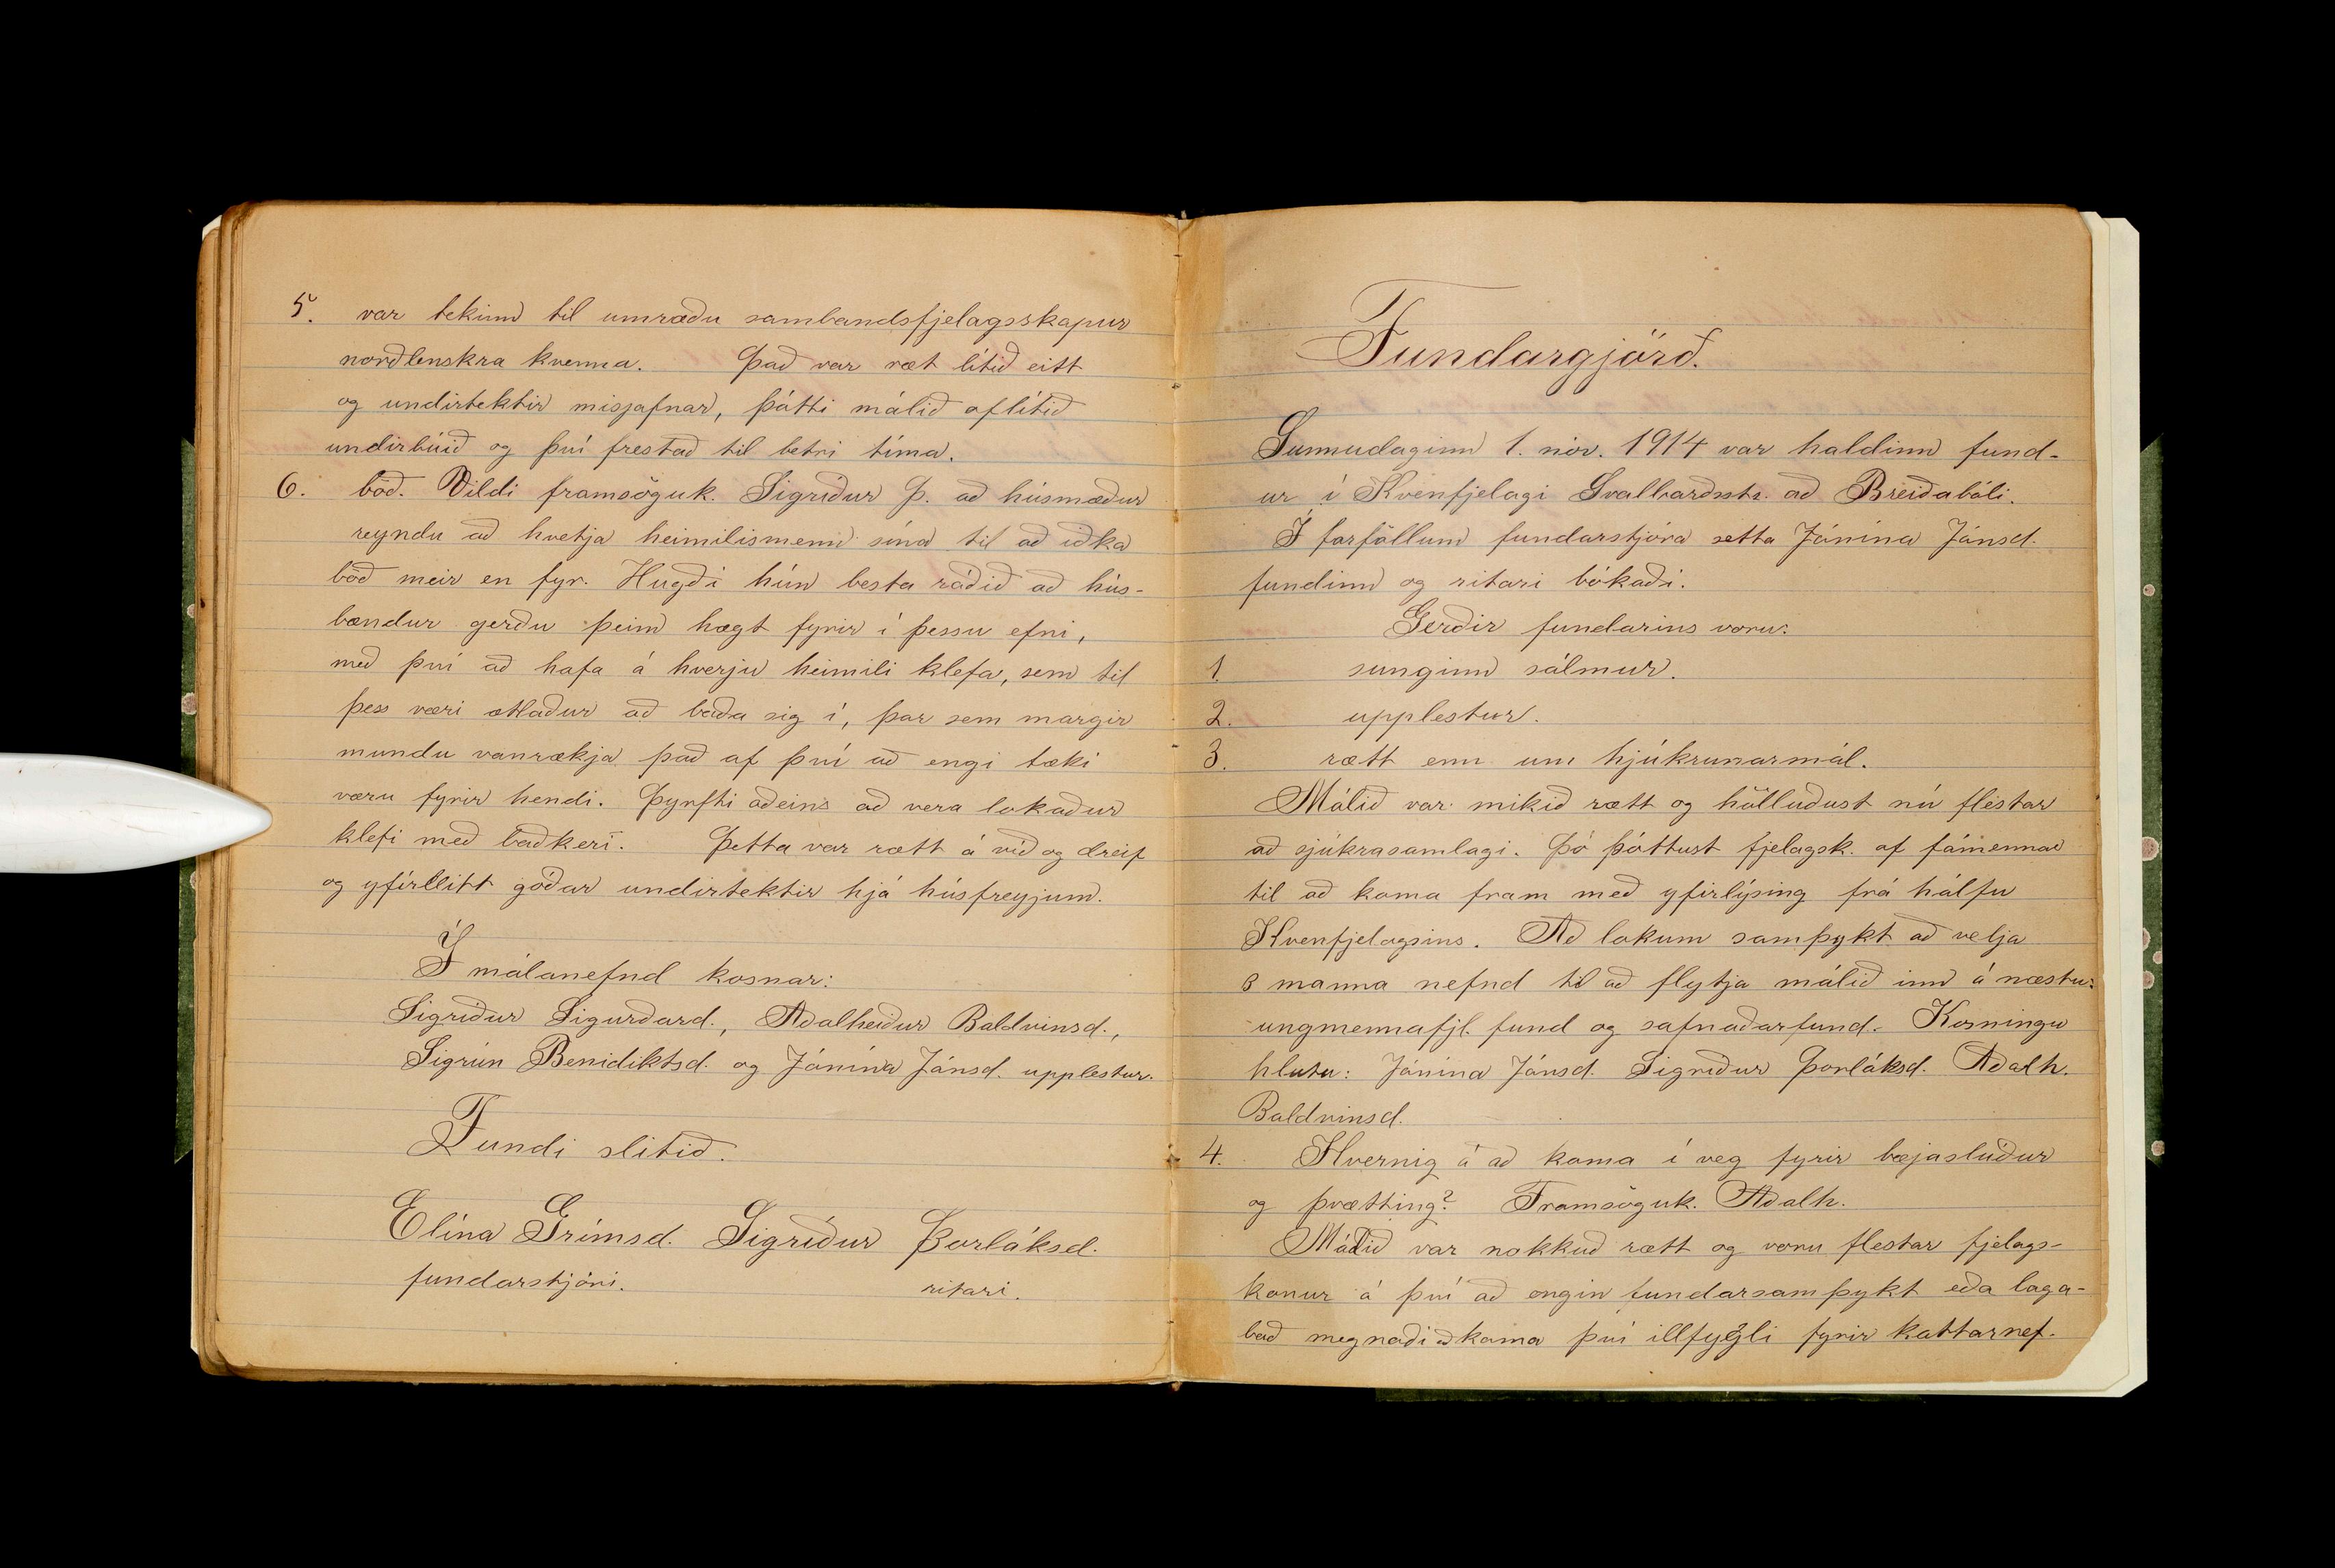 5. var tekinn til umræðu sambandsfjelagsskapur
norðlenskra kvenna. Það var ræt lítið eitt
og undirtektir misjafnar, þótti málið oflítið
undirbúið og því frestað til betri tíma.
6. böð. Vildi framsöguk. Sigríður Þ. að húsmæður
reyndu að hvetja heimilismenn sína til að iðka
böð meir en fyr. Hugði hún besta ráðið að hús-
bændur gerðu þeim hægt fyrir í þessu efni,
með því að hafa á hverju heimili klefa, sem til
þess væri ætlaður að baða sig í, þar sem margir
mundu vanrækja það af því að engi tæki
væru fyrir hendi. Þyrfti aðeins að vera lokaður
klefi með baðkeri. Þetta var rætt á víð og dreif
og yfirleitt góðar undirtektir hjá húsfreyjum.
Í málanefnd kosnar:
Sigríður Sigurðard., Aðalheiður Baldvinsd.,
Sigrún Benidiktsd. og Jónína Jónsd. upplestur.
Fundi slitið.
Elína Grímsd. Sigríður Þorláksd.
fundarstjóri. ritari.
Fundargjörð.
Sunnudaginn 1. nóv. 1914 var haldinn fund-
ur í Kvenfjelagi Svalbarðsstr. að Breiðabóli.
Í forföllum fundarstjóra setta Jónína Jónsd.
fundinn og ritari bókaði.
Gerðir fundarins voru:
1. sunginn sálmur.
2. upplestur.
3. rætt enn um hjúkrunarmál.
Málið var mikið rætt og hölluðust nú flestar
að sjúkrasamlagi. Þó þóttust fjelagsk. of fámennar
til að koma fram með yfirlýsing frá hálfu
Kvenfjelagsins. Að lokum samþykt að velja
3 manna nefnd til að flytja málið inn á næstu
ungmennafjl. fund og safnaðarfund. Kosningu
hlutu: Jónína Jónsd. Sigríður Þorláksd. Aðalh.
Baldvinsd.
4. Hvernig á að koma í veg fyrir bæjaslúður
og þvætting? Framsöguk. Aðalh.
Málið var nokkuð rætt og voru flestar fjelags-
konur á því að engin fundarsamþykt eða laga-
boð megnaði að koma því illfygli fyrir kattarnef.